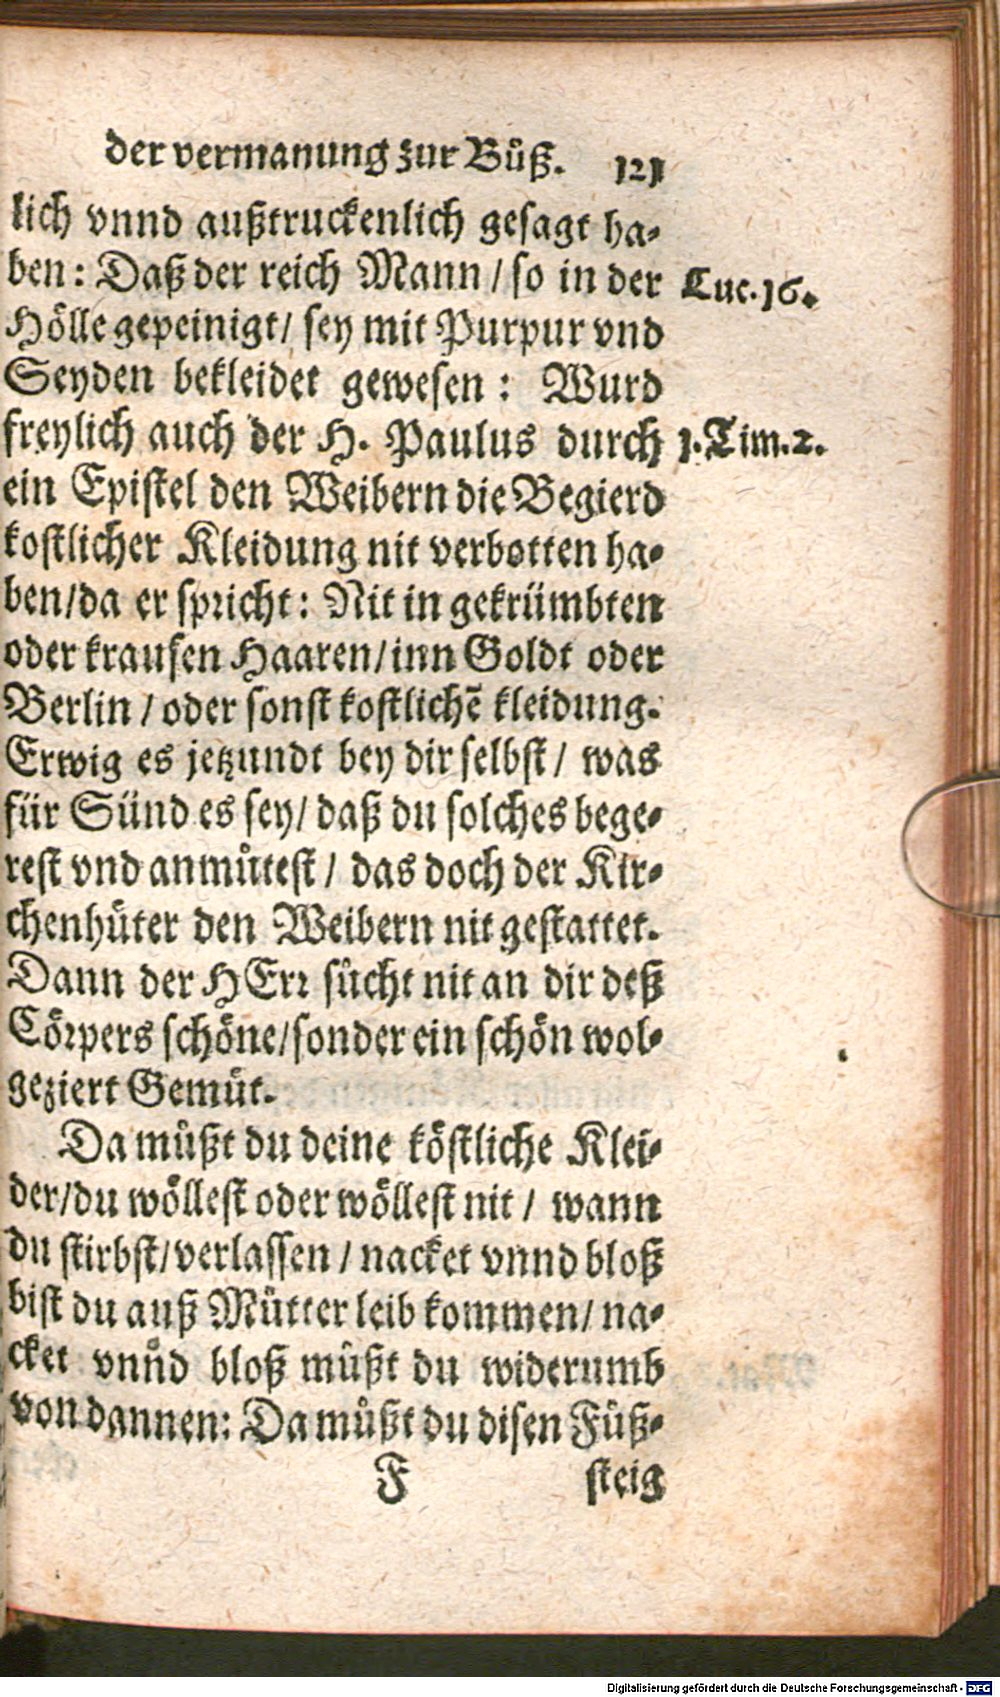 der vermanung zur Bůß. 121
lich vnnd außtruckenlich gesagt ha-
ben: Daß der reich Mann / so in der
Luc. 16.
Hölle gepeinigt / sey mit Purpur vnd
Seyden bekleidet gewesen: Wurd
freylich auch der H. Paulus durch
1. Tim. 2.
ein Epistel den Weibern die Begierd
kostlicher Kleidung nit verbotten ha-
ben / da er spricht: Nit in gekrümbten
oder krausen Haaren / inn Goldt oder
Berlin / oder sonst kostlichē kleidung.
Erwig es jetzundt bey dir selbst / was
für Sünd es sey / daß du solches bege-
rest vnd anmůtest / das doch der Kir-
chenhüter den Weibern nit gestattet.
Dann der HErr sůcht nit an dir deß
Cörpers schöne / sonder ein schön wol-
geziert Gemüt.
Da můßt du deine köstliche Klei-
der / du wöllest oder wöllest nit / wann
du stirbst / verlassen / nacket vnnd bloß
bist du auß Můtter leib kommen / na-
cket vnnd bloß můßt du widerumb
von dannen: Da můßt du disen Fůß-
F steig
Digitalisierung gefördert durch die Deutsche Forschungsgemeinschaft - DFG